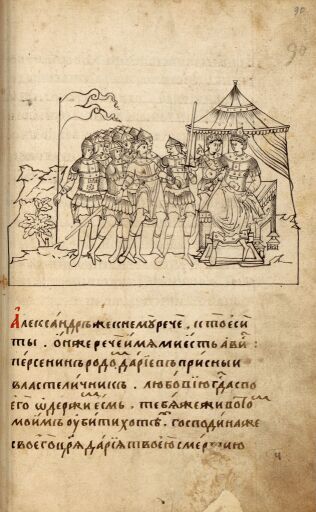 90
90
Александръ же к нему рече, кто еси
ты. он же рече имя ми есть авис:
персенинъ родо, дариевъ присныи
властеличникъ. любовию гда спо
его одержи есмь. тебя же живото
моимъ оубити хотѣ. господина же
своего цря дария твоею смертию
ч